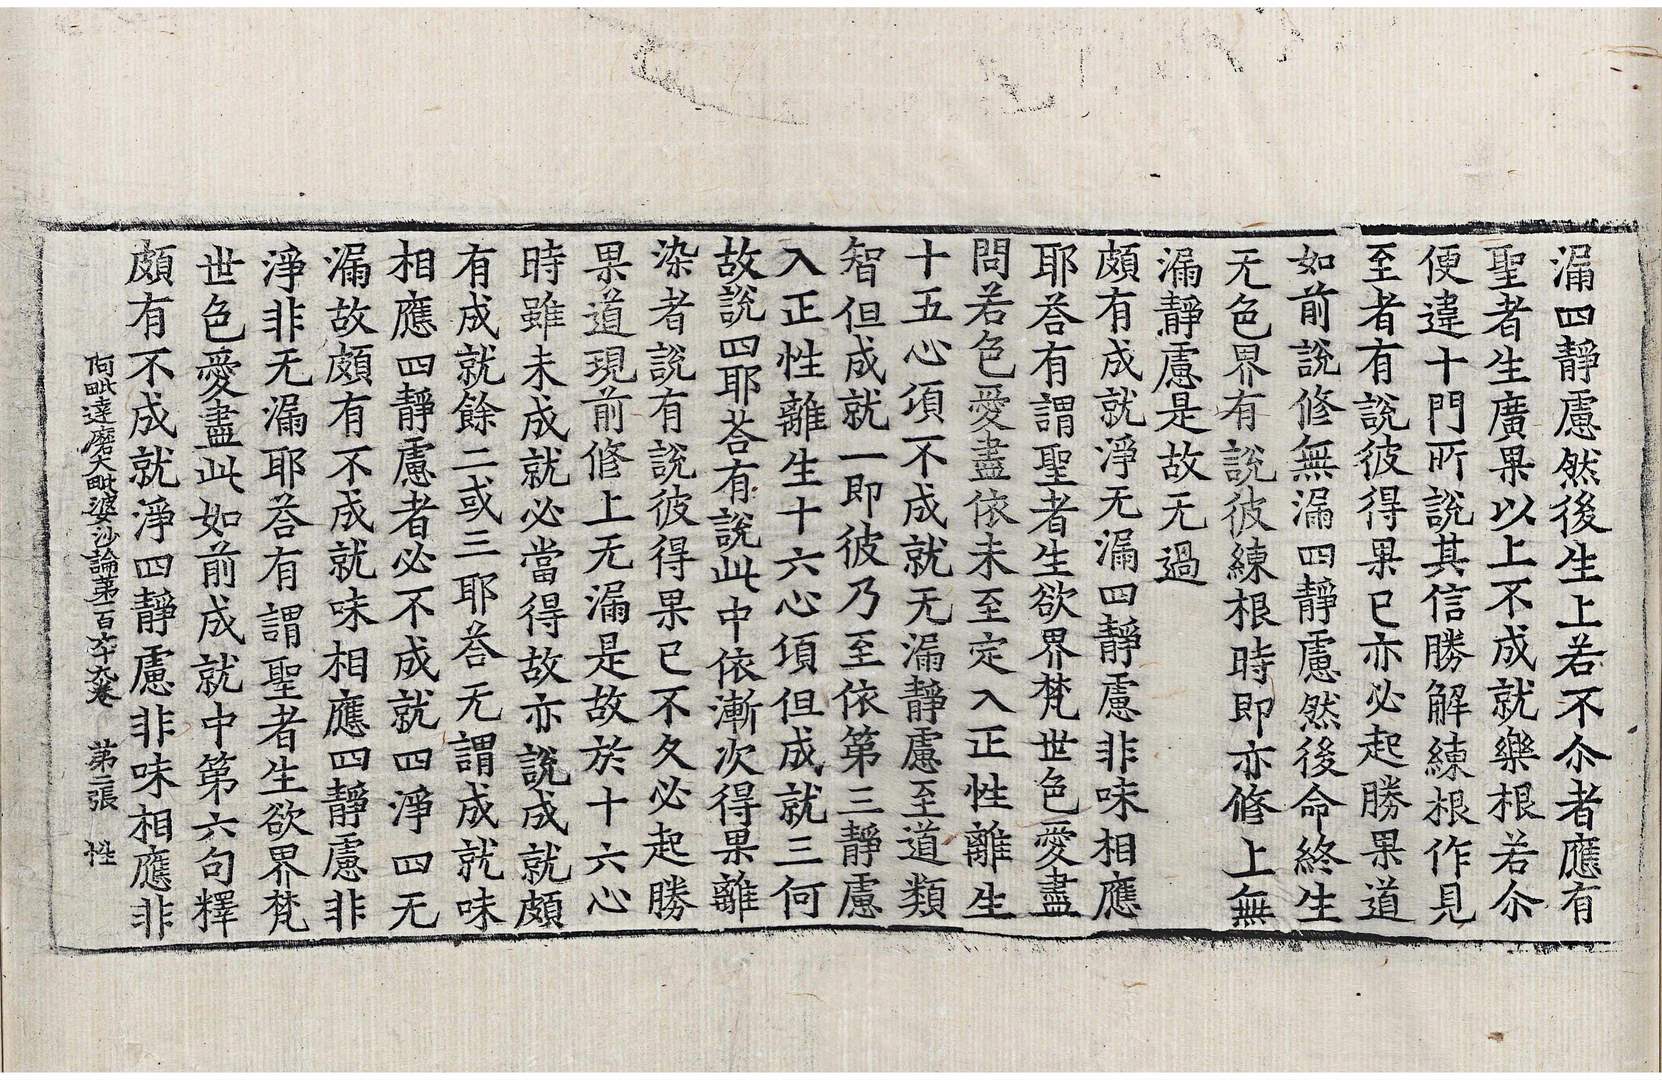 漏四靜慮然後生上若不尒者應有
聖者生廣果以上不成就樂根若尒
便違十門所說其信勝解練根作見
至者有說彼得果已亦必起勝果道
如前說修無漏四靜慮然後命終生
无色界有說彼練根時即亦修上無
漏靜慮是故无過
頗有成就淨无漏四靜慮非味相應
耶荅有謂聖者生欲界梵世色愛盡
問若色愛盡依未至定入正性離生
十五心頃不成就无漏靜慮至道類
智但成就一即彼乃至依第三靜慮
入正性離生十六心頃但成就三何
故說四耶荅有說此中依漸次得果離
染者說有說彼得果已不久必起勝
果道現前修上无漏是故於十六心
時雖未成就必當得故亦說成就頗
有成就餘二或三耶荅无謂成就味
相應四靜慮者必不成就四淨四无
漏故頗有不成就味相應四靜慮非
淨非无漏耶荅有謂聖者生欲界梵
世色愛盡此如前成就中第六句釋
頗有不成就淨四靜慮非味相應非
阿毗達磨大毗婆沙論第一百六十九卷 第二張 性